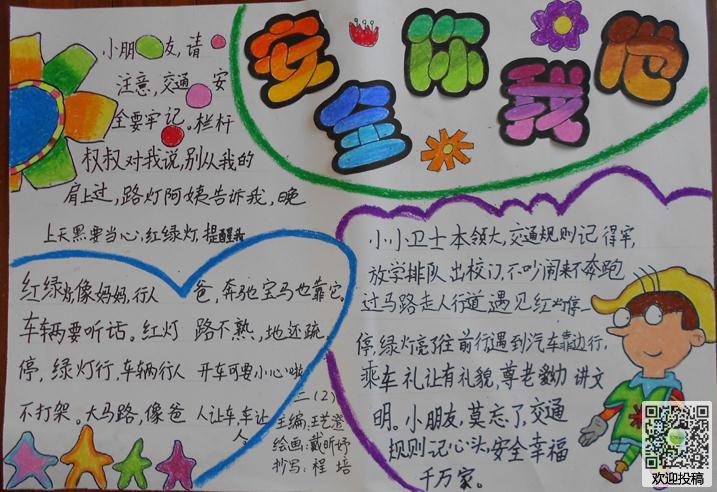 安全 你我他
小朋友,请
注意,交通安
全要牢记。栏杆
叔叔对我说,别从我的
肩上过,路灯阿姨告诉我,晚
上天黑要当心,红绿灯,提醒我
红绿灯像妈妈,行人
车辆要听话。红灯
停,绿灯行,车辆行人
不打架。大马路,像爸
爸,奔驰宝马也靠它。
路不熟,地还疏
开车可要小心啦
人让车,车让
人
二(2)
主编:王艺澄
绘画:戴昕妤
抄写:程培
小小卫士本领大,交通规则记得牢,
放学排队出校门,不吵闹来不奔跑
过马路走人行道,遇见红灯停一
停,绿灯亮了往前行,遇到汽车靠边行,
乘车礼让有礼貌,尊老爱幼讲文
明。小朋友,莫忘了,交通
规则记心头,安全幸福
千万家。
欢迎投稿